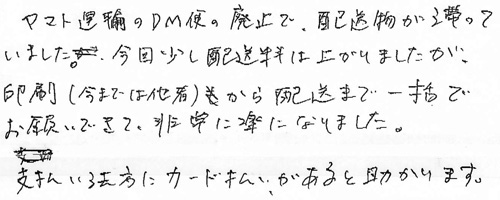 ヤマト運輸のDM便の廃止で、配送物が滞って
いました。今回少し配送料は上がりましたが、
印刷(今までは他者)巻から配送まで一括で
お願いできて、非常に楽になりました。
支払い方法にカード払いがあると助かります。